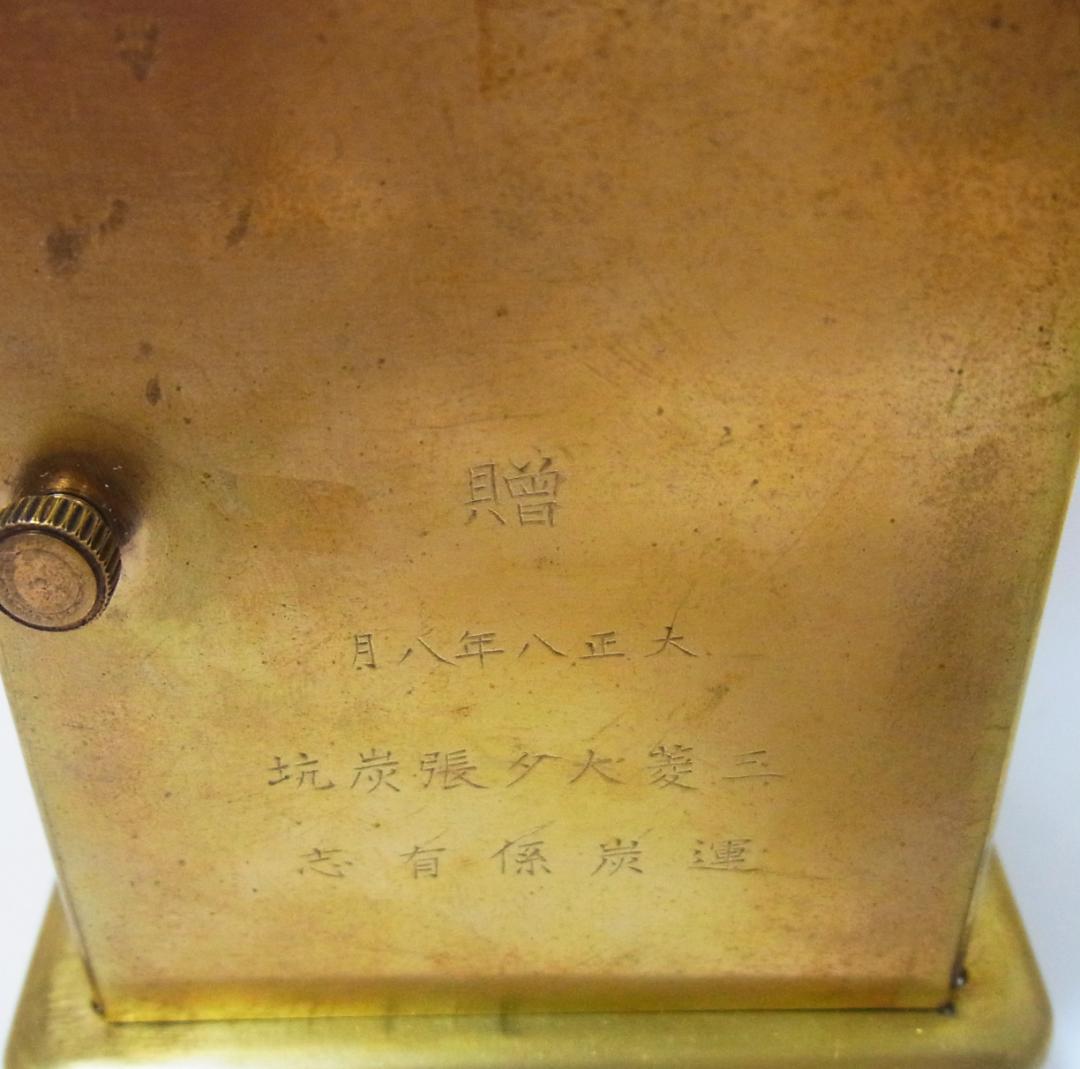 贈
大正八年八月
三菱大夕張炭坑
運炭係有志